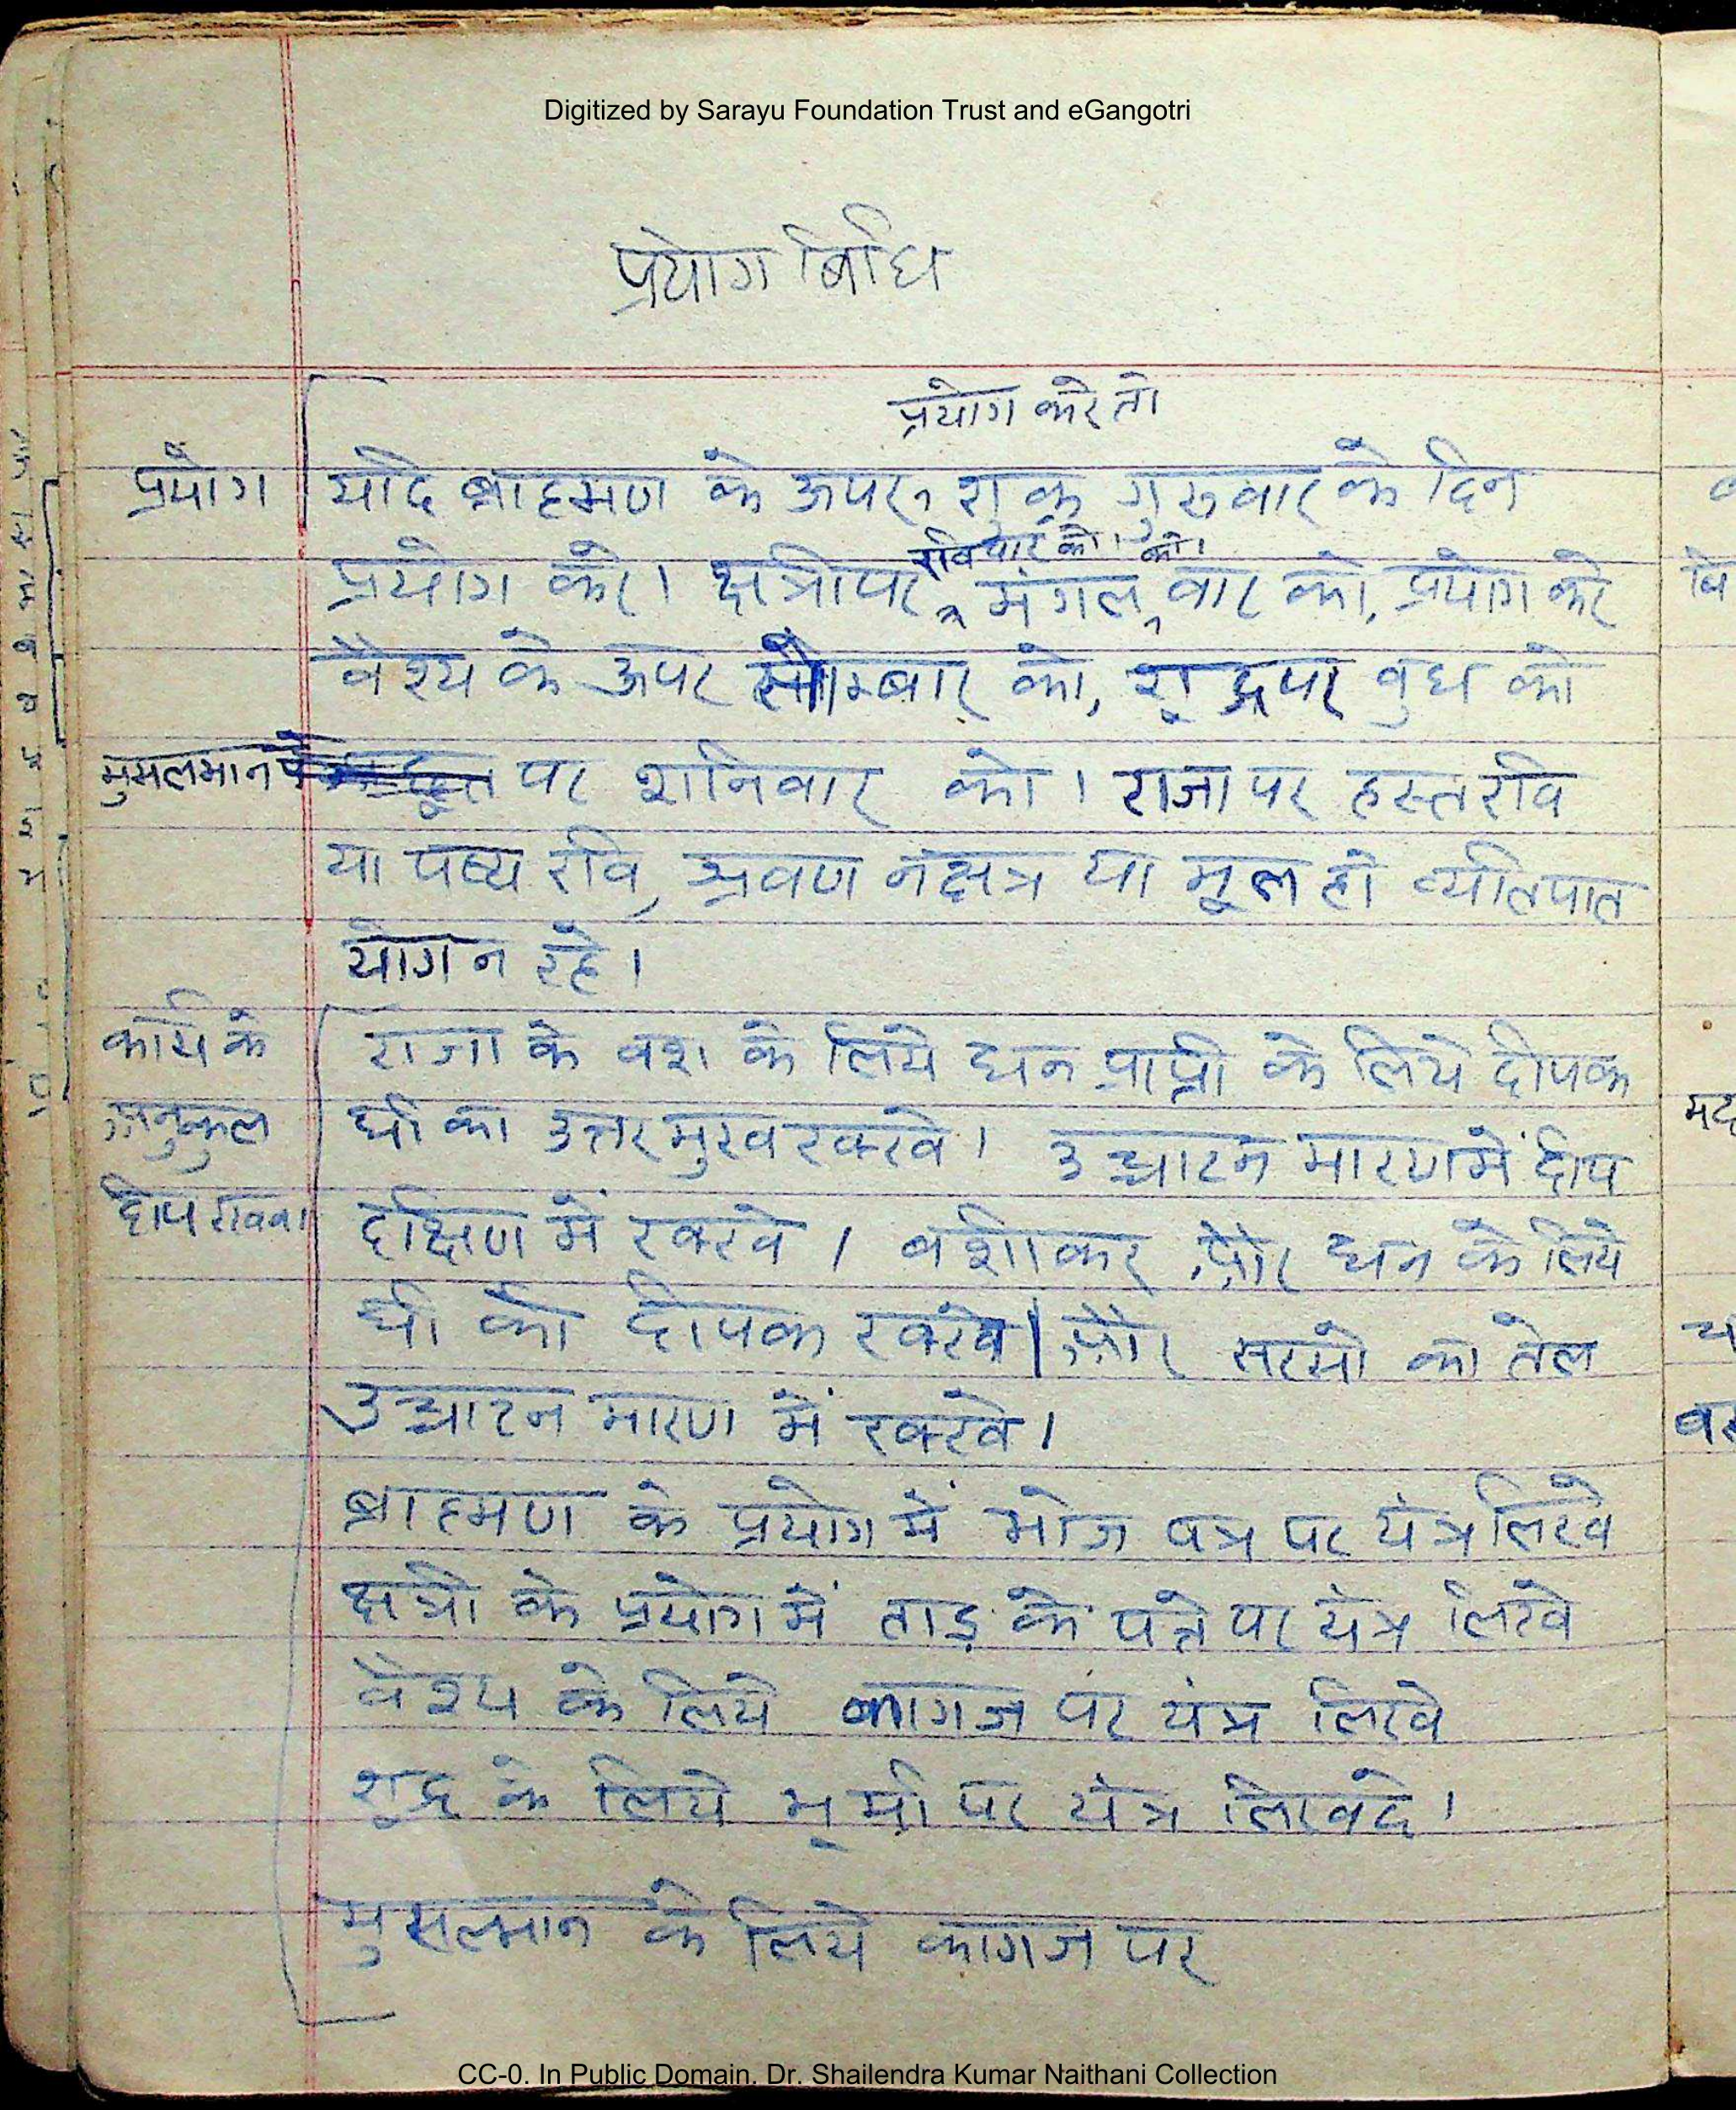 Digitized by Sarayu Foundation Trust and eGangotri
प्रयोग बिधि
प्रयोग करे तो
प्रयोग यदि ब्राह्मण के ऊपर, शुक्र गुरुवार के दिन
रविवार को। को।
प्रयोग करे। क्षत्री पर मंगल वार को, प्रयोग करे
वैश्य के ऊपर सोमबार को, शूद्र पर बुध को
मुसलमान पै पर शनिवार को। राजा पर हस्त रवि
या पष्य रवि, श्रवण नक्षत्र या मूल हो व्यतिपात
योग न रहे।
कार्य के राजा के वश के लिये धन प्राप्ती के लिये दीपक
अनुकुल घी का उत्तर मुख रक्खे। उच्चाटन मारण में दीप
दीप रखना दक्षिण में रक्खे। बशीकर और धन के लिये
घी को दीपक रक्खे। और सरसो का तेल
उच्चाटन मारण में रक्खे।
ब्राह्मण के प्रयोग में भोज पत्र पर यंत्र लिखे
क्षत्री के प्रयोग में ताड़ के पत्ते पर यंत्र लिखे
वैश्य के लिये कागज पर यंत्र लिखे
शूद्र के लिये भूमी पर यंत्र लिखदे।
मुसलमान के लिये कागज पर
CC-0. In Public Domain. Dr. Shailendra Kumar Naithani Collection